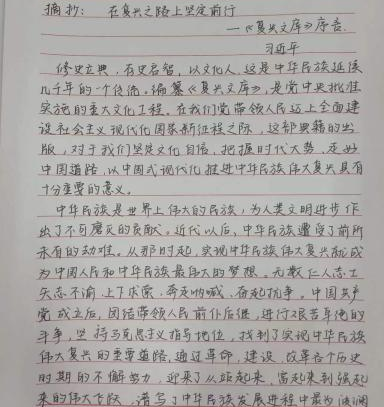 摘抄: 在复兴之路上坚定前行
——《复兴文库》序言
习近平
修史立典,存史启智,以文化人,这是中华民族延续
几千年的一个传统。编纂《复兴文库》,是党中央批准
实施的重大文化工程。在我们党带领人民迈上全面建
设社会主义现代化国家新征程之际,这部典籍的出
版,对于我们坚定文化自信、把握时代大势、走好
中国道路,以中国式现代化推进中华民族伟大复兴具有
十分重要的意义。
中华民族是世界上伟大的民族,为人类文明进步作
出了不可磨灭的贡献。近代以后,中华民族遭受了前所
未有的劫难。从那时起,实现中华民族伟大复兴就成
为中国人民和中华民族最伟大的梦想。无数仁人志士
矢志不渝、上下求索、奔走呐喊、奋起抗争。中国共产
党成立后,团结带领人民前仆后继、进行艰苦卓绝的
斗争,坚持马克思主义指导地位,找到了实现中华民族
伟大复兴的重要道路,通过革命、建设、改革各个历史
时期的不懈努力,迎来了从站起来、富起来到强起
来的伟大飞跃,谱写了中华民族发展进程中最为波澜